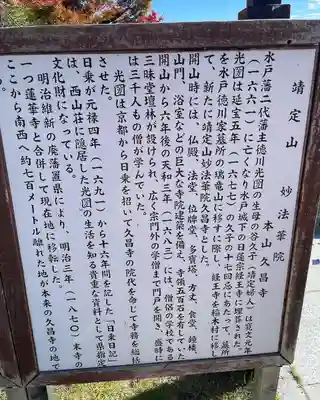 靖定山 妙法華院
本山 久昌寺
水戸藩二代藩主徳川光圀の生母の谷久子(靖定夫人)は寛文元年
(一六六一)に亡くなり水戸城下の日蓮宗経王寺に埋葬された。
光圀は延宝五年(一六七七)の久子の十七回忌にあたって、墓所
を水戸徳川家墓所の瑞竜山に移すに際し、経王寺を稲木村に移し
て、新たに靖定山妙法華院久昌寺とした。
開山時には、仏殿、法堂、位牌堂、多宝塔、方丈、食堂、鐘楼、
山門、浴室などの巨大な寺院建築を備え、寺領五百石を有していた
開山から六年後の天和三年(一六八三)には、僧侶の学校である
三昧堂壇林が設けられ、広く宗門外の学僧まで門戸を開き、盛時に
は三千人もの僧が学んでいた。
光圀は京都から日乗を招いて久昌寺の院代を命じて寺務を総括
させた。
日乗が元禄四年(一六九一)から十六年間を記した「日乗日記」
は、西山荘に隠居した光圀の生活を知る貴重な資料として県指定
文化財になっている。
明治維新の廃藩置県により、明治三年(一八七〇)末寺の
一つ蓮華寺と合併して現在地に移転した。
ここから南西へ約七百メートル離れた地が本来の久昌寺の地で